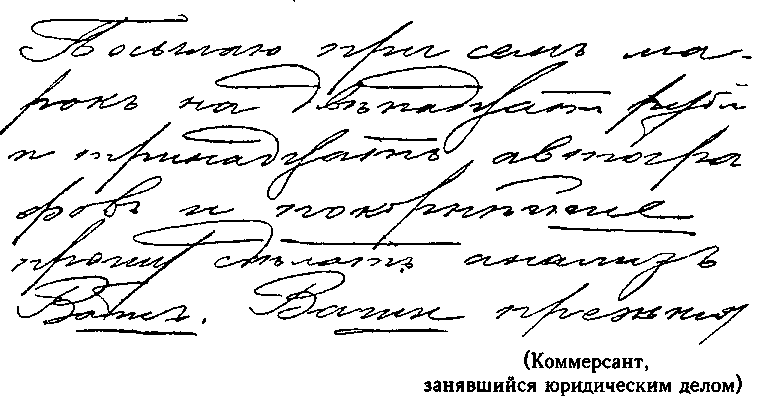 Посылаю при семъ ма-
рокъ на двѣнадцать рубл
и тринадцать автогра
фовъ и покорнѣйше
прошу сдѣлать анализъ
Вашъ. Ваши прежнія
(Коммерсант,
занявшийся юридическим делом)